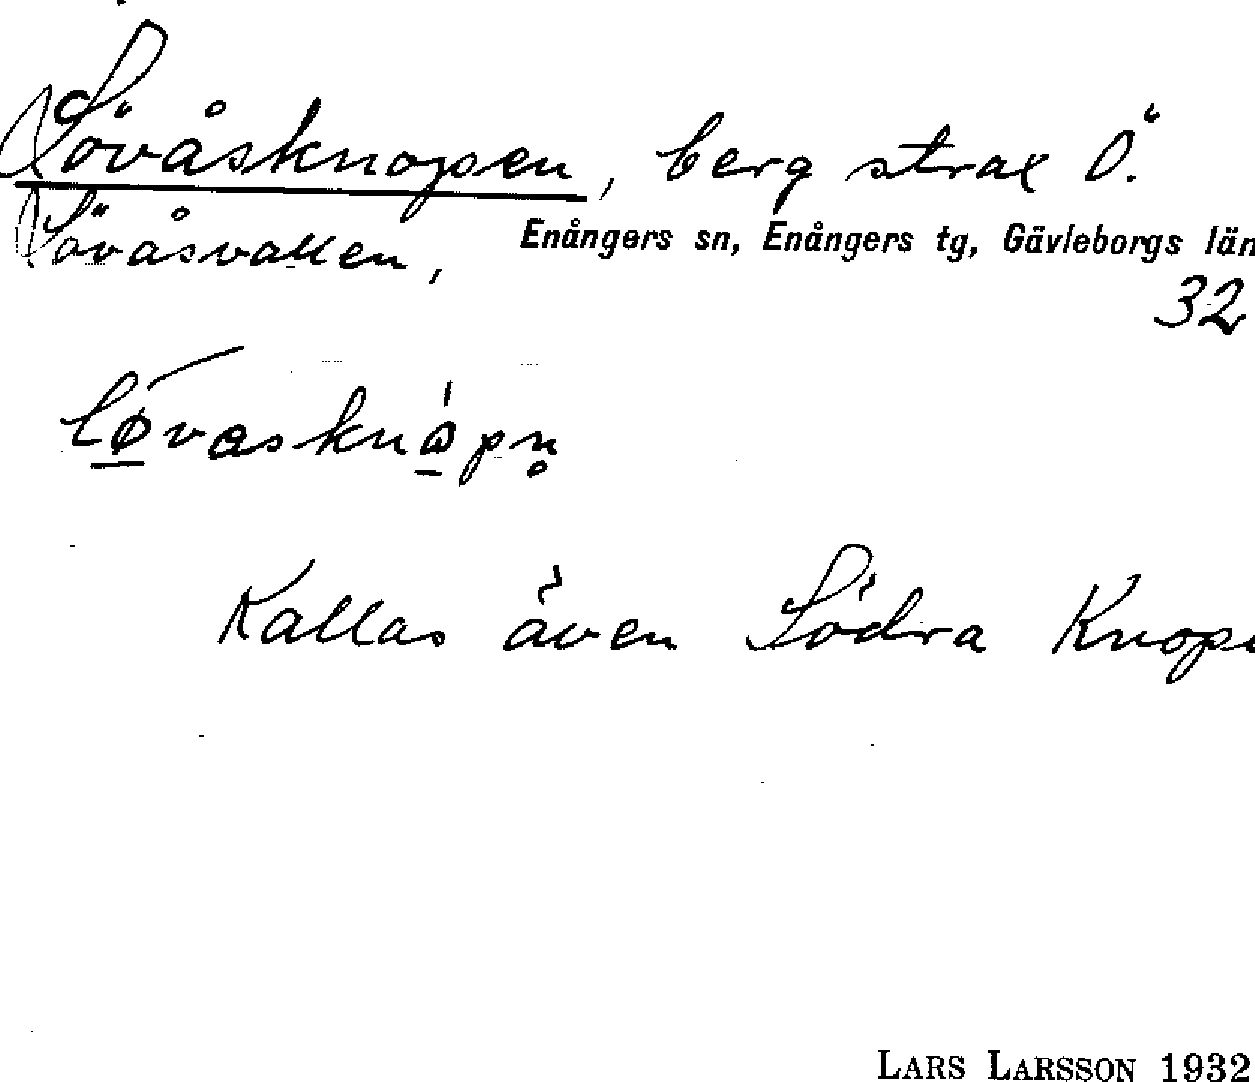 Lövåsknopen, berg strax Ö.
Lövåsvallen,
Enångers sn, Enångers tg, Gävleborgs län
32
Kallas även Södra Knope
LARS LARSSON 1932